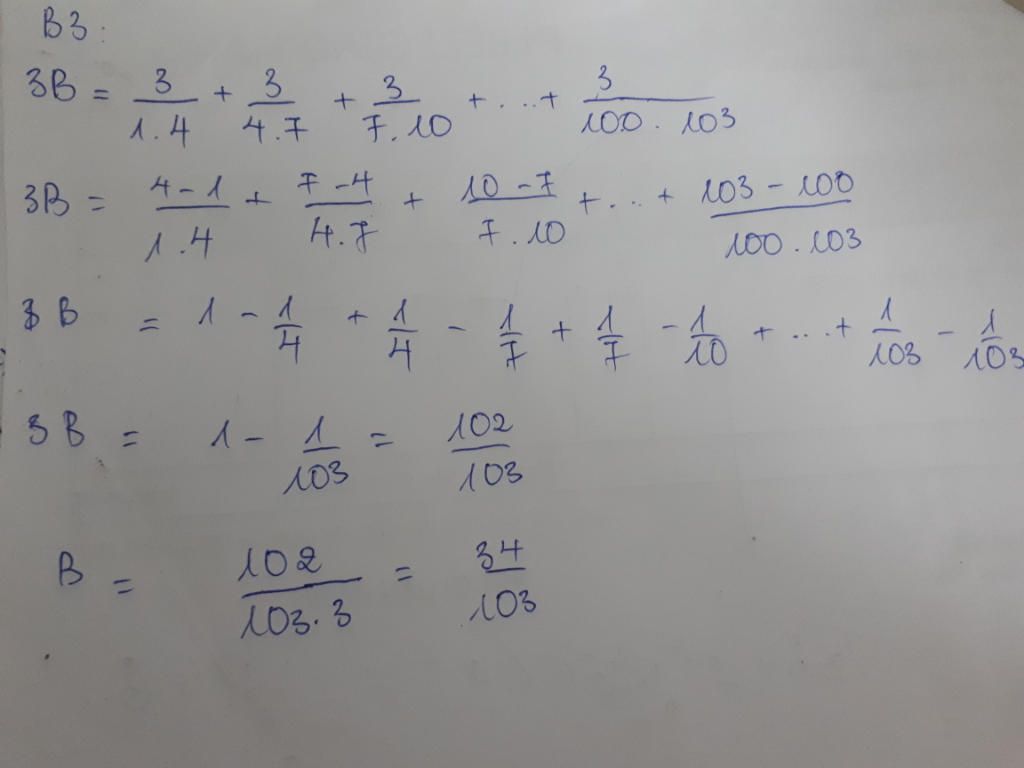 B3:
3B = 3/1.4 + 3/4.7 + 3/7.10 + ...+ 3/100.103
3B = 4-1/1.4 + 7-4/4.7 + 10-7/7.10 + ... + 103-100/100.103
3B = 1 - 1/4 + 1/4 - 1/7 + 1/7 - 1/10 + ...+ 1/103 - 1/103
3B = 1 - 1/103 = 102/103
B = 102/103.3 = 34/103